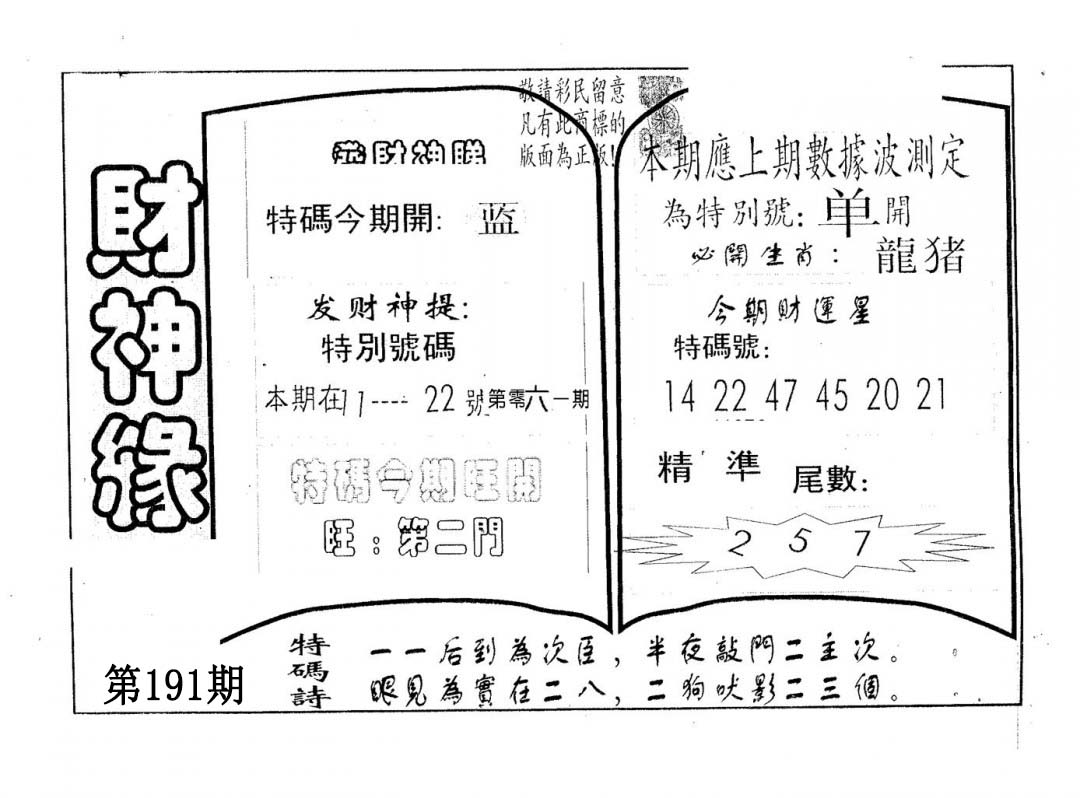 財神緣
第191期
敬請彩民留意
凡有此商標的
版面為正版!
特碼今期開: 蓝
发财神提:
特別號碼
本期在11----22號第零六一期
特碼今期旺開
旺:第二門
本期應上期數據波測定
為特別號:单開
必開生肖:龍猪
今期財運星
特碼號:
14 22 47 45 20 21
精準 尾數:
2 5 7
特碼詩
一一后到為次臣,半夜敲門二主次。
眼見為實在二八,二狗吠影二三個。